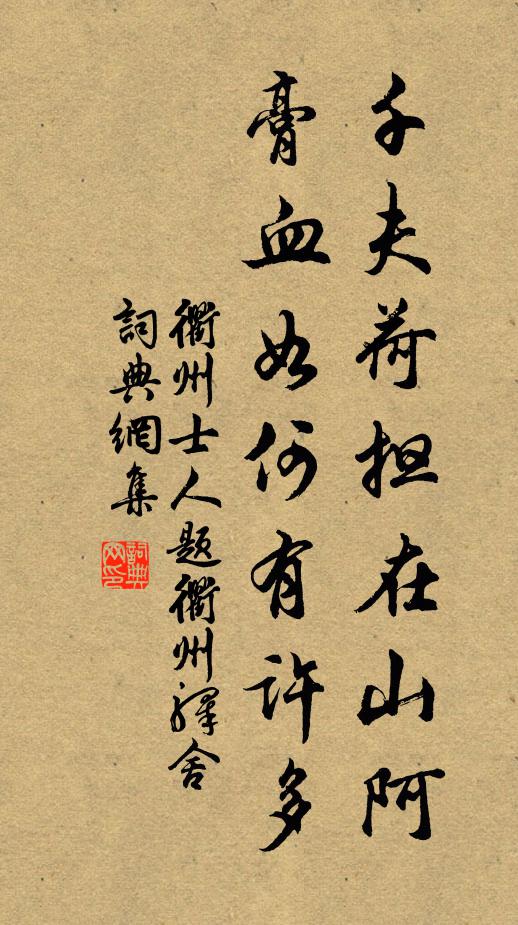 千夫荷担在山阿
膏血如何有许多
衢州士人题衢州驿舍
詞典網集
詞典网印